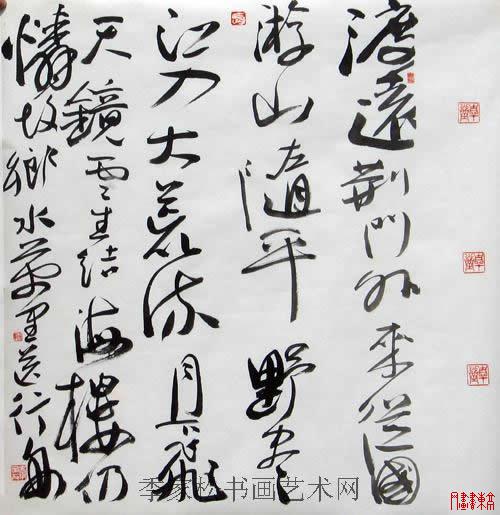 渡遠荊門外來從國
游山隨平野盡
江入大荒流月下飛
天鏡雲生結海樓仍
憐故鄉水萬里送行舟
李家松书画艺术网